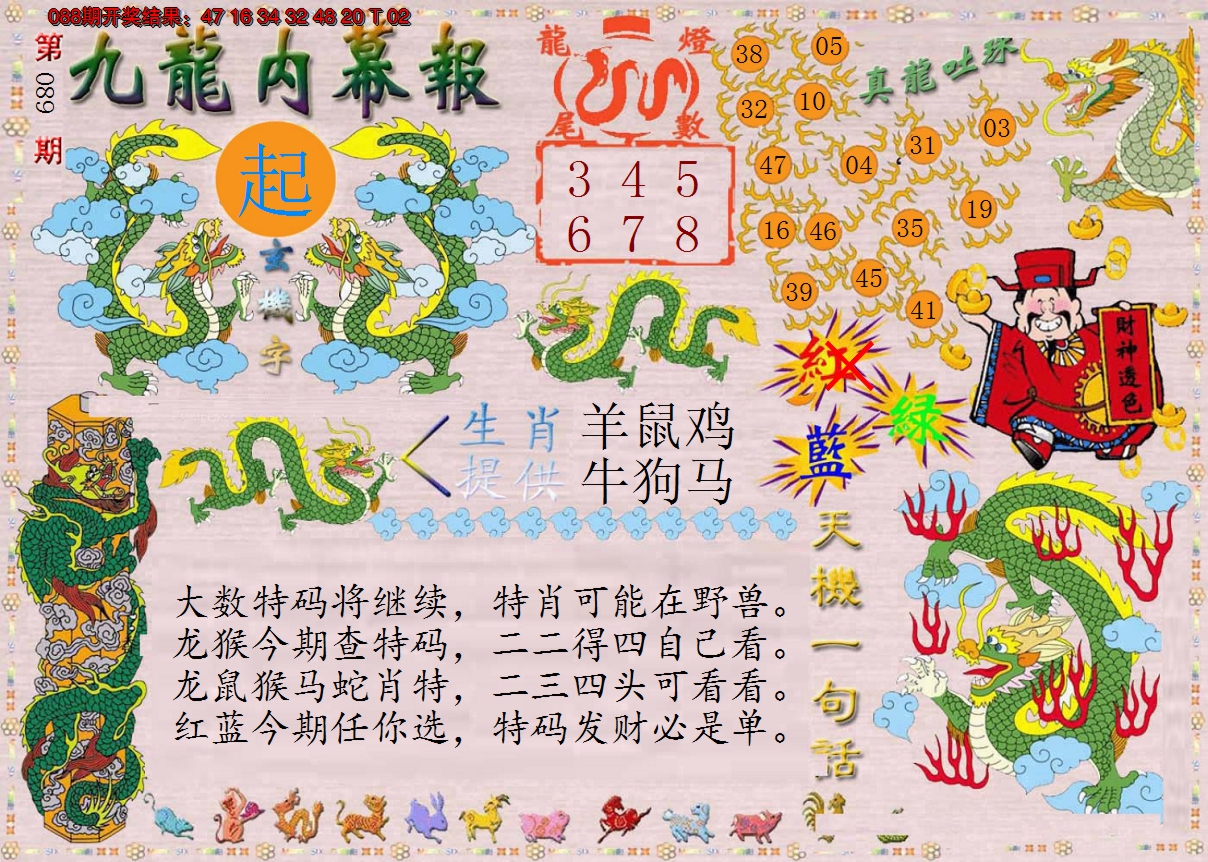 088期开奖结果：47 16 34 32 48 20 T 02
第
089
期
九龍内幕報
起
玄
機
字
龍 燈
尾 數
3 4 5
6 7 8
真龍吐珠
38 05
32 10
47 04 31 03
16 46 35 19
39 45 41
紅
绿
藍
財神透色
生肖 羊鼠鸡
提供 牛狗马
大数特码将继续，特肖可能在野兽。
龙猴今期查特码，二二得四自己看。
龙鼠猴马蛇肖特，二三四头可看看。
红蓝今期任你选，特码发财必是单。
天機一句話